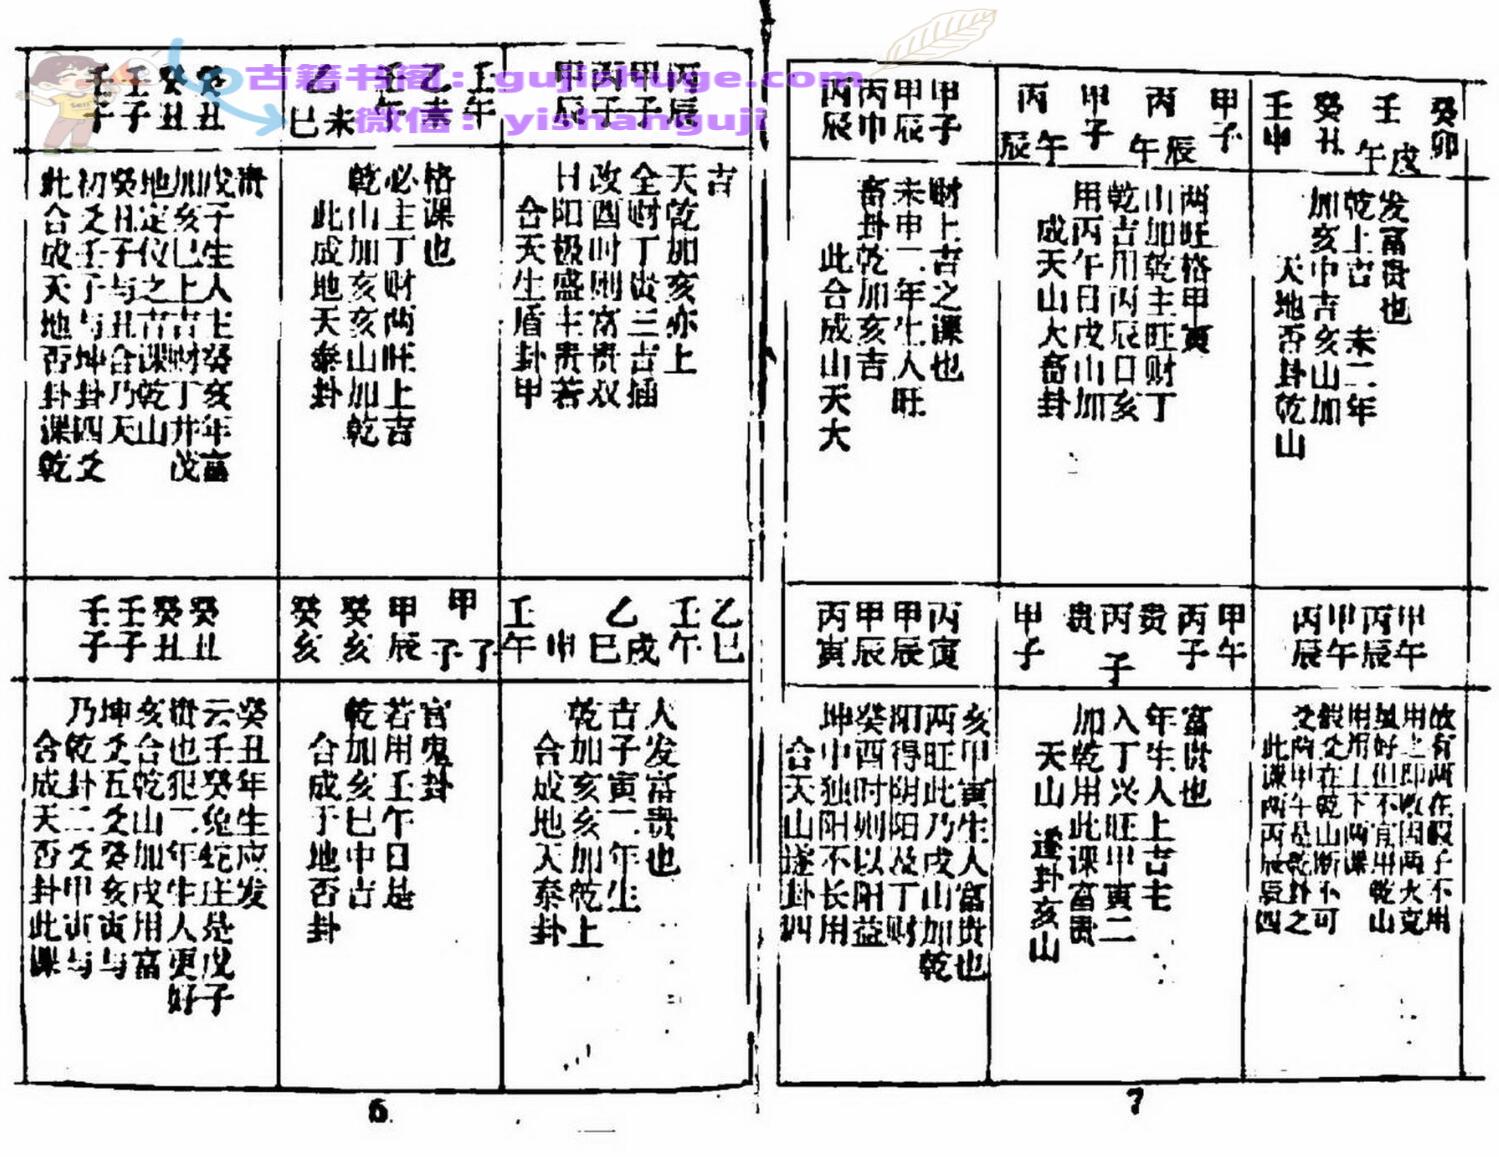 古籍书阁：gujishuge.com
微信：yishanguji
壬午
壬子
癸丑
癸丑
此合成天地否卦课乾
初爻壬子与坤卦四爻
癸丑子与丑合乃天
地定位之吉课乾山
加亥巳上吉财丁井茂
戊子生人主癸亥年富
贵
乙巳
未
壬午
乙未
壬午
此成地天泰卦
乾山加亥亥山加乾
必主丁财两旺上吉
格课也
甲辰
丙子
甲子
丙辰
合天生盾卦甲
日阳极盛主贵若
改酉时则富贵双
全财丁贵三吉插
天乾加亥亦上
吉
壬子
壬子
癸丑
癸丑
合成天否卦此课
乃乾卦二爻甲寅与
坤爻五爻癸亥寅与
亥合乾山加戌用富
贵也犯二年生人更好
云壬癸兔蛇庄是戊子
癸丑年生应发
癸亥
癸亥
甲辰
甲子
子
合成于地否卦
乾加亥巳中吉
若用壬午日是
官鬼卦
壬午
申
乙巳
戌
壬午
乙巳
合成地人泰卦
乾加亥亥加乾上
吉子寅二年生
人发富贵也
6
丙辰
丙申
甲辰
甲子
此合成山天大
畜卦乾加亥吉
未申二年生人旺
财上吉之课也
丙辰
午
甲子
丙午
辰
甲子
成天山大畜卦
用丙午日戌山加
乾吉用丙辰日亥
山加乾主旺财丁
两旺格甲寅
壬申
癸丑
壬午
戌
癸卯
天地否卦乾山
加亥中吉亥山加
乾上吉 未二年
发富贵也
丙寅
甲辰
甲辰
丙寅
合天山遂卦四
坤中独阳不长用
癸酉时则以阳益
阳得阴阳及丁财
两旺此乃戌山加乾
亥甲寅生人富贵也
甲子
贵
丙子
贵
丙子
甲午
天山遂卦亥山
加乾用此课富贵
入丁兴旺甲寅二
年生人上吉主
富贵也
丙辰
甲午
丙辰
甲午
此课两丙辰辰四
爻两甲午是乾卦之
假爻在乾山断不可
用用上下两课
虽好但不宜甲乾山
用之即败因两火克
故有两在假子不用
7